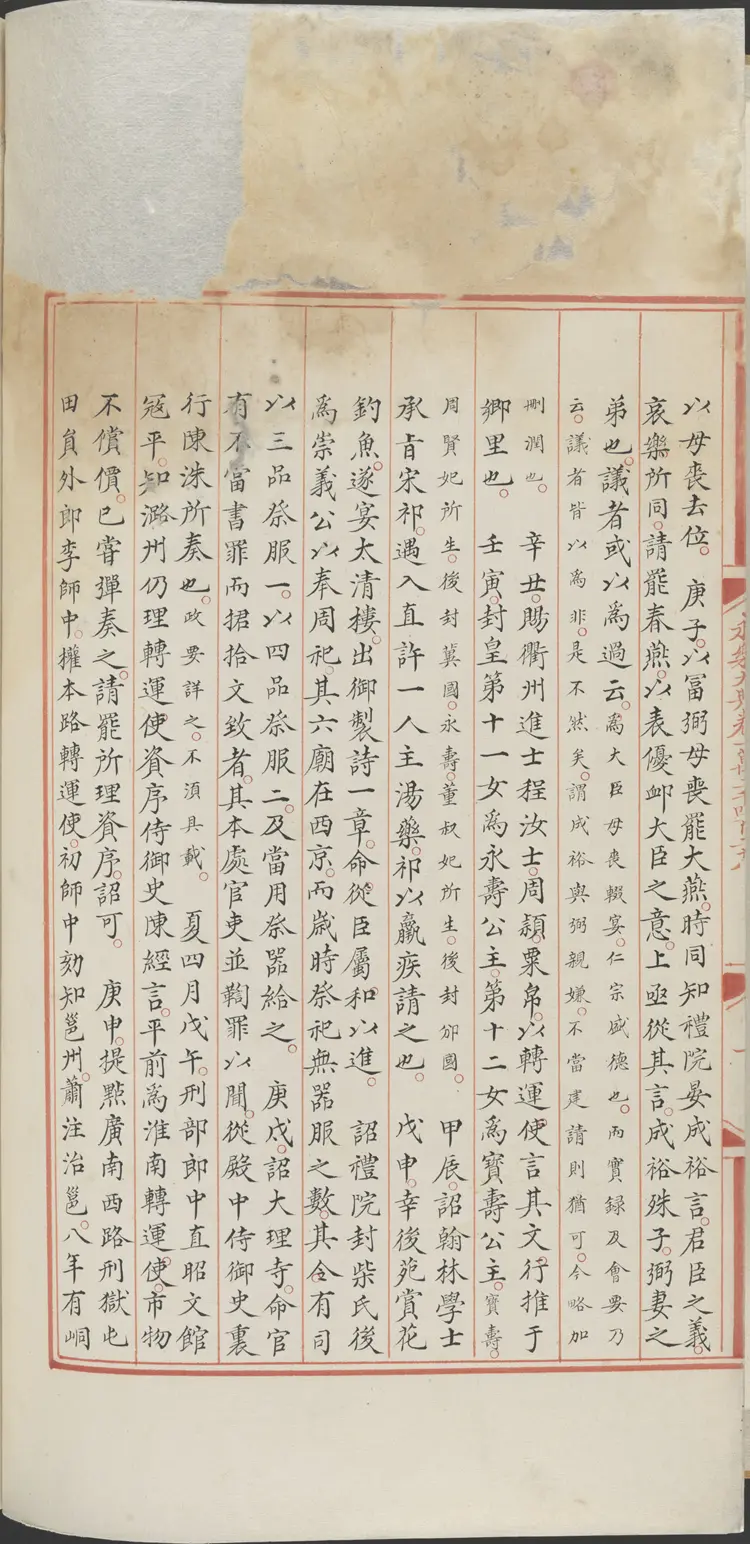 以母喪去位。 庚子。以富弼母喪罷大燕。時同知禮院晏成裕言。君臣之義。
哀樂所同。請罷春燕。以表優卹大臣之意。上亟從其言。成裕殊子。弼妻之
弟也。議者或以為過云。為大臣母喪輟宴。仁宗盛德也。而實録及會要乃
云。議者皆以為非。是不然矣。謂成裕與弼親嫌。不當建請則猶可。今略加
刪潤也。 辛丑。賜衢州進士程汝士。周穎。粟帛。以轉運使言其文行推于
鄉里也。 壬寅。封皇第十一女為永壽公主。第十二女為寶壽公主。寶壽。
周賢妃所生。後封冀國。永壽。董叔妃所生。後封邠國。 甲辰。詔翰林學士
承旨宋祁。遇入直許一人主湯藥。祁以羸疾請之也。 戊申。幸後苑賞花
釣魚。遂宴太清樓。出御製詩一章。命從臣屬和以進。 詔禮院封柴氏後
為崇義公。以奉周祀。其六廟在西京。而歳時祭祀無器服之數。其令有司
以三品祭服一。以四品祭服二。及當用祭器給之。 庚戍。詔大理寺。命官
有不當書罪而捃拾文致者。其本處官吏並鞫罪以聞。從殿中侍御史裏
行陳洙所奏也。政要詳之。不須具載。 夏四月戊午。刑部郎中直昭文館
寇平。知潞州仍理轉運使資序侍御史陳經言。平前為淮南轉運使。市物
不償價。已甞彈奏之。請罷所理資序。詔可。 庚申。提點廣南西路刑獄屯
田貟外郎李師中。擢本路轉運使。初師中劾知邕州。蕭注治邕。八年有峒